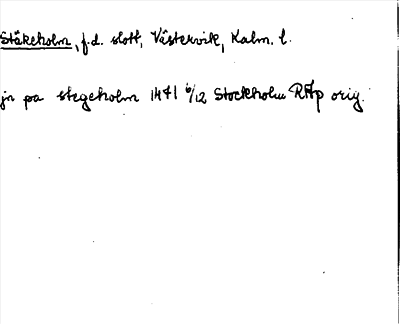 Stäkeholm, f.d. slott, Västervik, Kalm. l.
jn pa stegeholm 1471 6/12 Stockholm RAp orig.